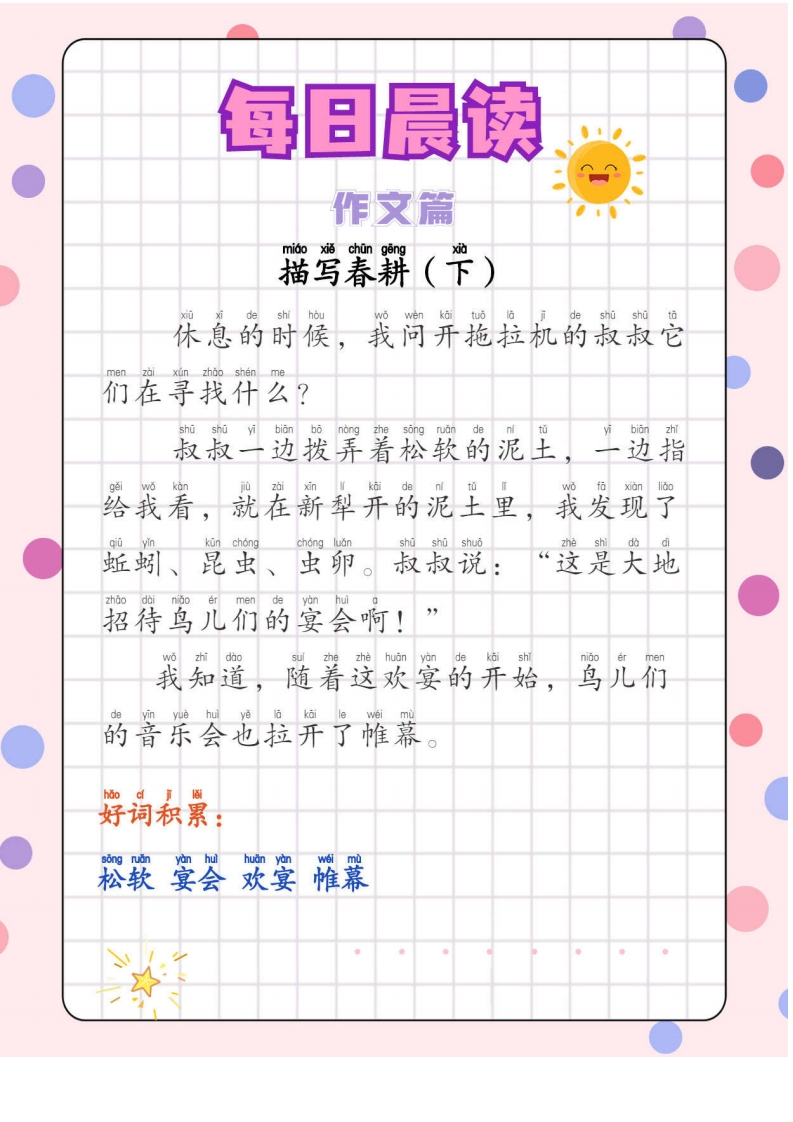 每日晨读
作文篇
miáo xiě chūn gēng xià
描写春耕（下）
xiū xī de shí hòu wǒ wèn kāi tuō lā jī de shū shū tā
休息的时候，我问开拖拉机的叔叔它
men zài xún zhǎo shén me
们在寻找什么？
shū shū yī biān bō nòng zhe sōng ruǎn de ní tǔ yī biān zhǐ
叔叔一边拨弄着松软的泥土，一边指
gěi wǒ kàn jiù zài xīn lí kāi de ní tǔ lǐ wǒ fā xiàn liǎo
给我看，就在新犁开的泥土里，我发现了
qiū yǐn kūn chóng chóng luǎn shū shū shuō zhè shì dà dì
蚯蚓、昆虫、虫卵。叔叔说：“这是大地
zhāo dài niǎo ér men de yàn huì a
招待鸟儿们的宴会啊！”
wǒ zhī dào suí zhe zhè huān yàn de kāi shǐ niǎo ér men
我知道，随着这欢宴的开始，鸟儿们
de yīn yuè huì yě lā kāi le wéi mù
的音乐会也拉开了帷幕。
hǎo cí jī lěi
好词积累：
sōng ruǎn yàn huì huān yàn wéi mù
松软 宴会 欢宴 帷幕